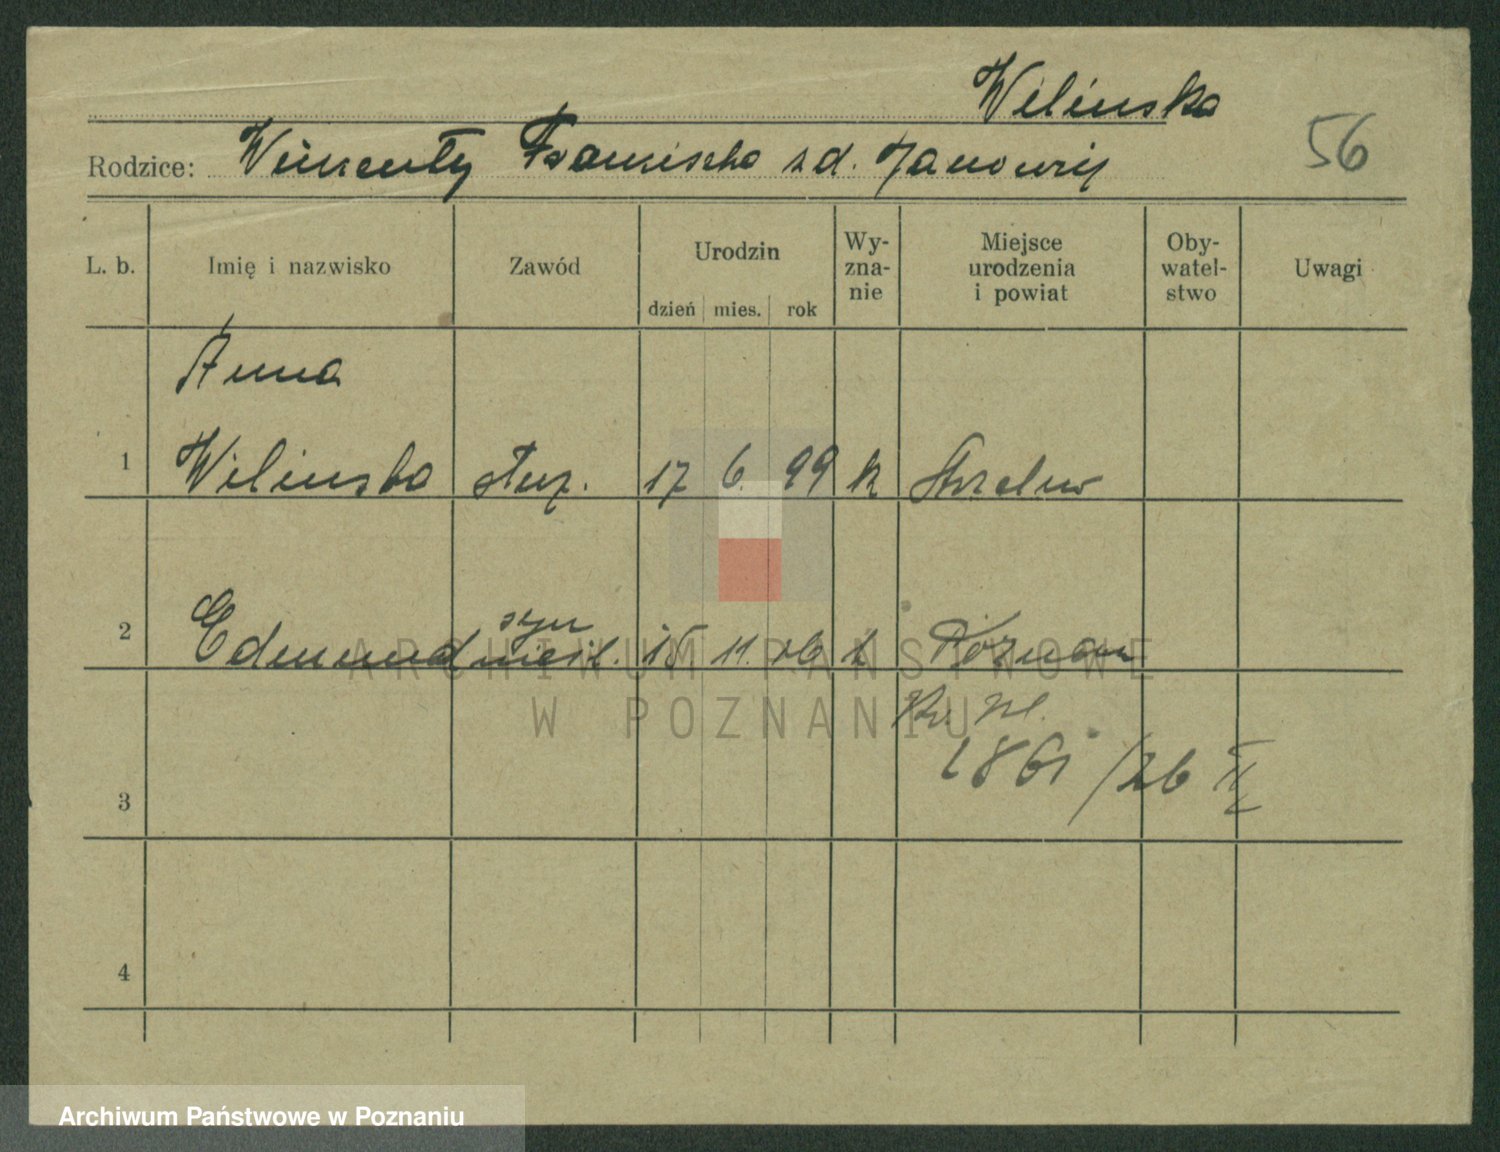 Wilinska
56
Rodzice: Wincenty Franciszka z d. Janowicz
L. b. Imię i nazwisko Zawód Urodzin dzień mies. rok Wyznanie Miejsce urodzenia i powiat Obywatelstwo Uwagi
Anna
1 Wilinska służ. 17 6. 99 k Strzelno
syn
2 Edmund nieśl. 15 11. 26 k Poznan
1861/26
3
4
ARCHIWUM PAŃSTWOWE
W POZNANIU
Archiwum Państwowe w Poznaniu